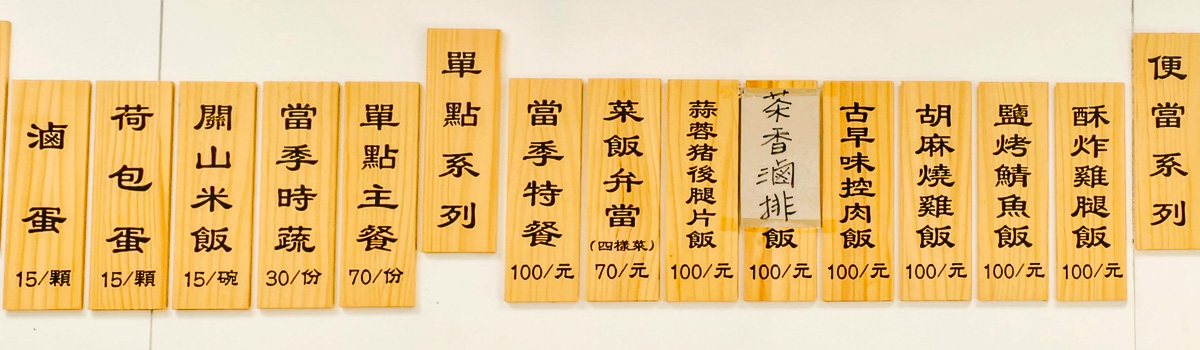 便當系列
酥炸雞腿飯
100/元
鹽烤鯖魚飯
100/元
胡麻燒雞飯
100/元
古早味控肉飯
100/元
茶香滷排飯
100/元
蒜蓉猪後腿片飯
100/元
菜飯弁當
(四樣菜)
70/元
當季特餐
100/元
單點系列
單點主餐
70/份
當季時蔬
30/份
關山米飯
15/碗
荷包蛋
15/顆
滷蛋
15/顆